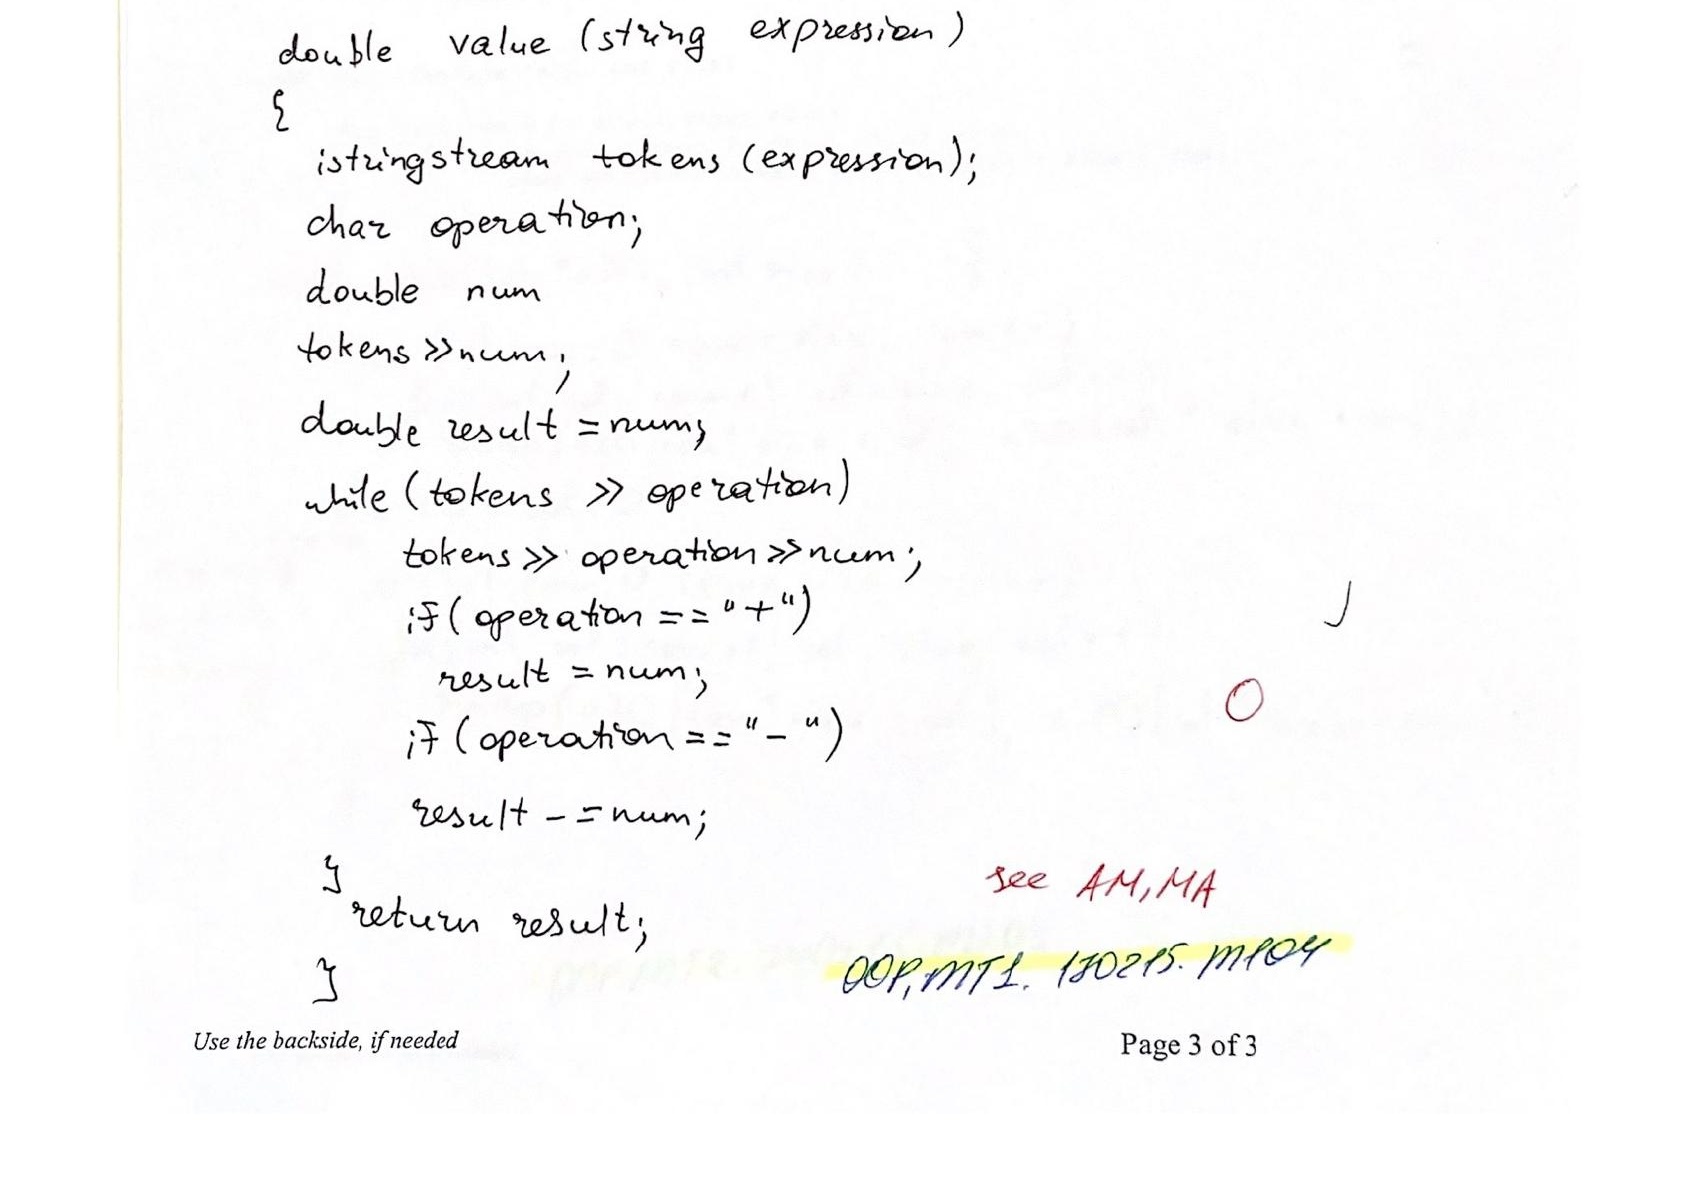 double value (string expression)
{
istringstream tokens (expression);
char operation;
double num
tokens >> num;
double result = num;
while (tokens >> operation)
tokens >> operation >> num;
if (operation == "+")
result = num;
if (operation == "-")
result -= num;
}
return result;
}
see AM, MA
OOP, MT1.
Use the backside, if needed
Page 3 of 3